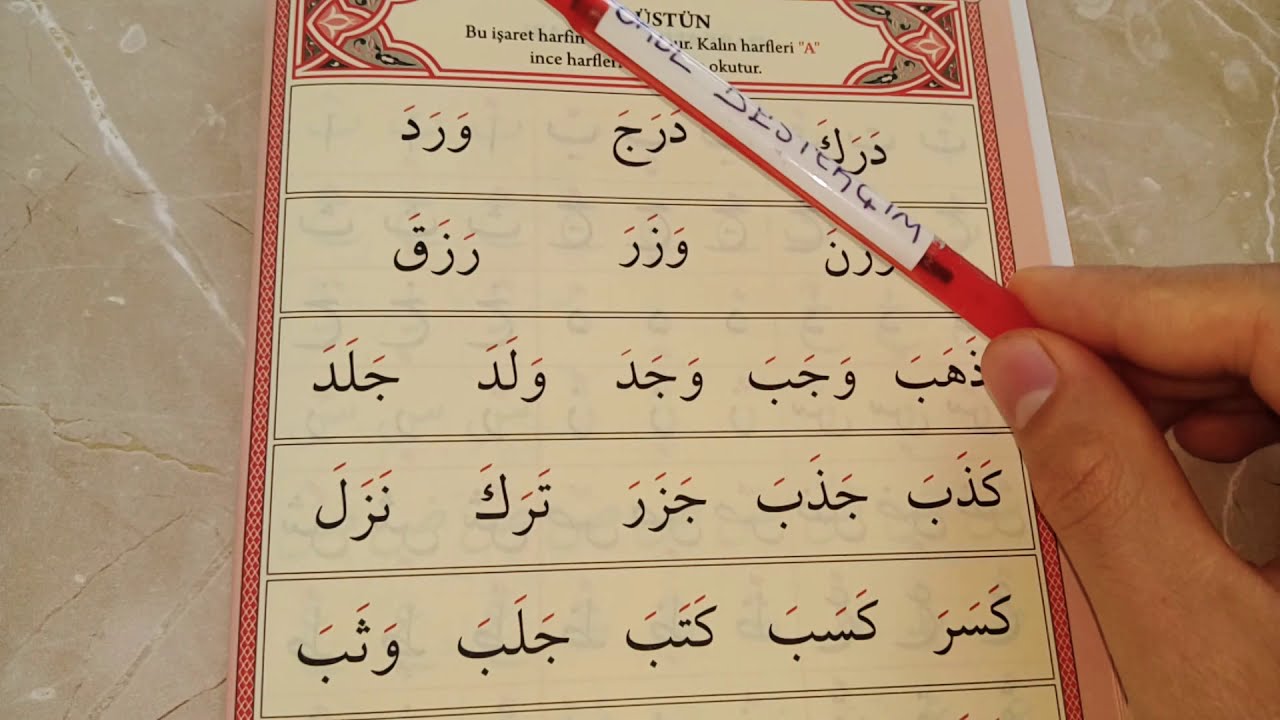 ÜSTÜN
Bu işaret harfin Kalın harfleri "A"
ince harfleri okutur.
DESTEKÇİM
دَرَكَ دَرَجَ وَرَدَ
وَزَرَ رَزَقَ
ذَهَبَ وَجَبَ وَجَدَ وَلَدَ جَلَدَ
كَذَبَ جَذَبَ جَزَرَ تَرَكَ نَزَلَ
كَسَرَ كَسَبَ كَتَبَ جَلَبَ وَثَبَ